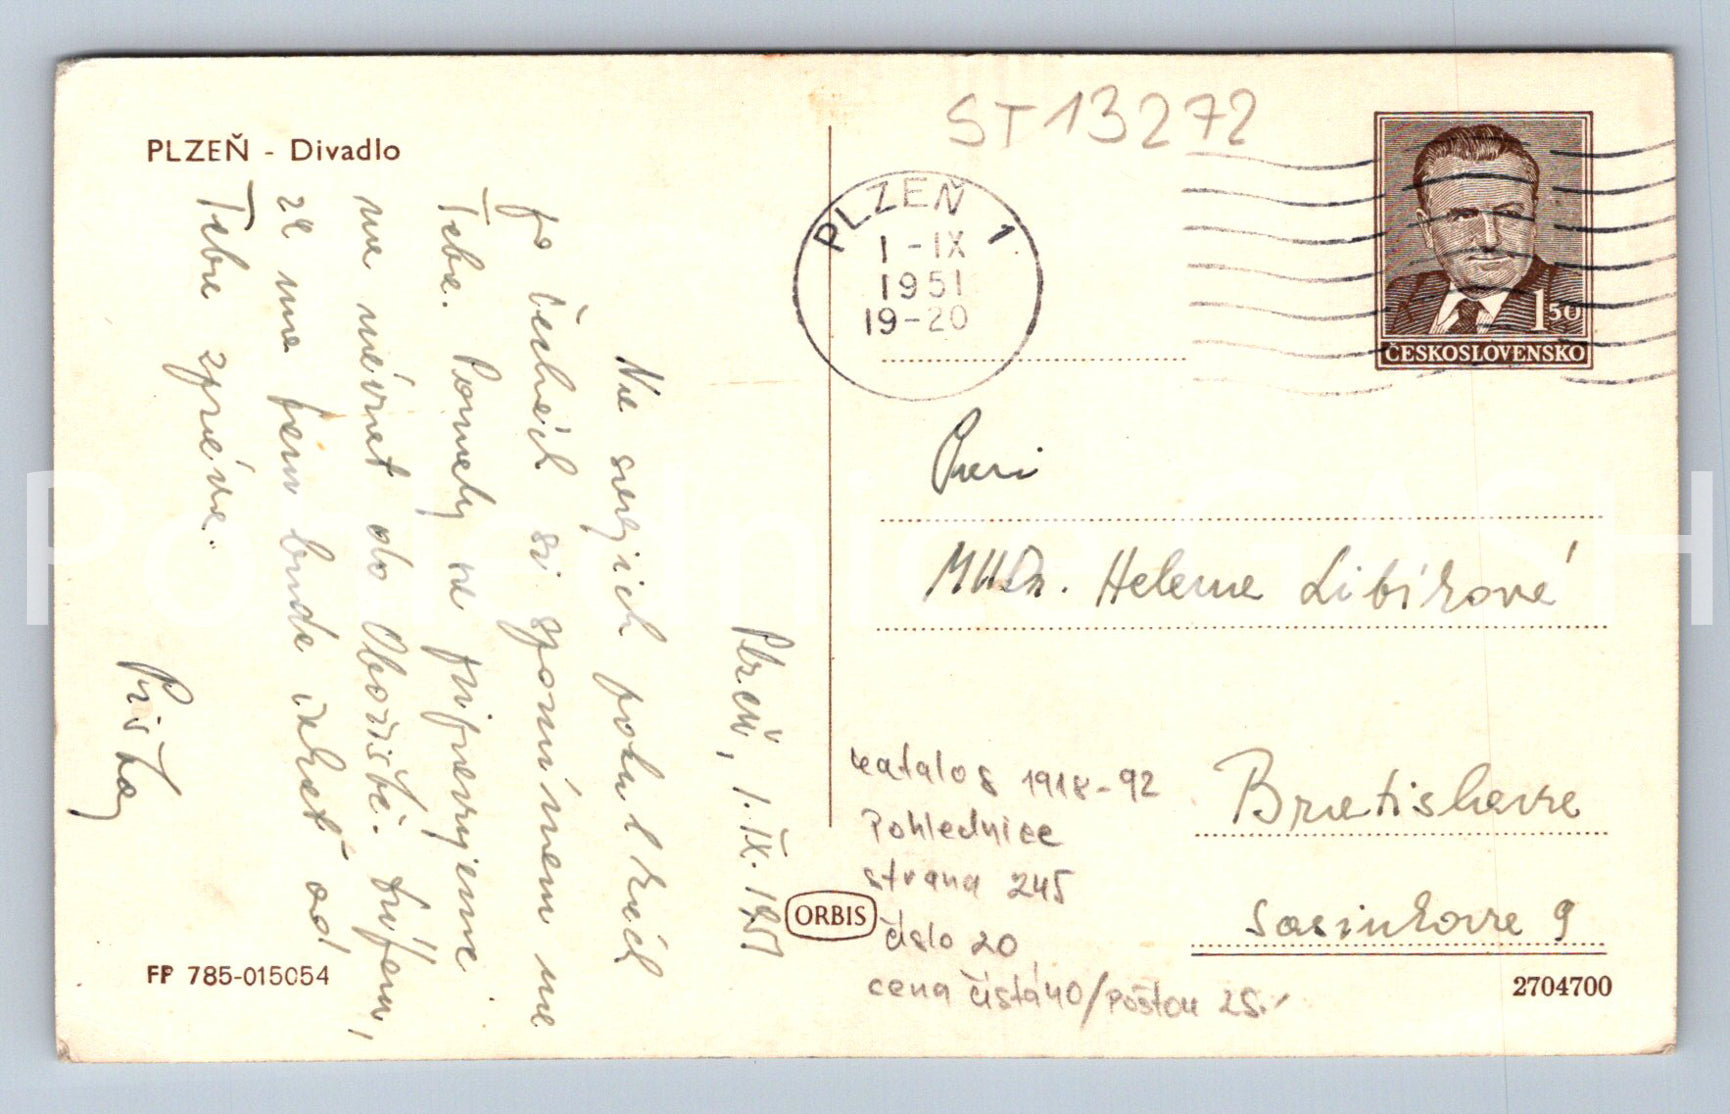 PLZEŇ - Divadlo
ST 13272
PLZEŇ 1
1-IX
1951
19-20
1 50
ČESKOSLOVENSKO
Plzeň, 1. IX. 1951
Na svojich potulkách
po Čechách si spomínam na
Teba. Pomaly sa pripravujeme
na návrat do Dúfam,
že ma tam bude čakať od
Teba zpráva.
Pani
MUDr. Helena Libíková
Bratislava
Sasinkova 9
katalog 1918-92
Pohlednice
strana 245
číslo 20
cena čistá 40/poštou 25.-
ORBIS
FP 785-015054
2704700
Pohlednice GASH